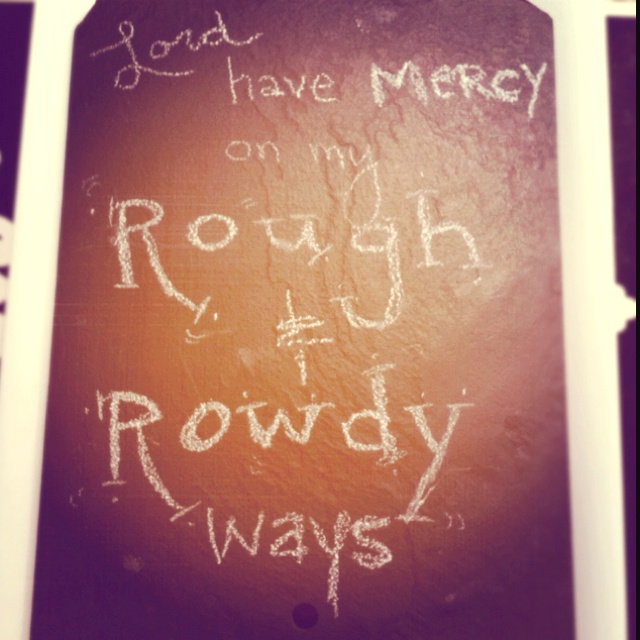 Lord
have MERCY
on my
"Rough
&
Rowdy
ways"